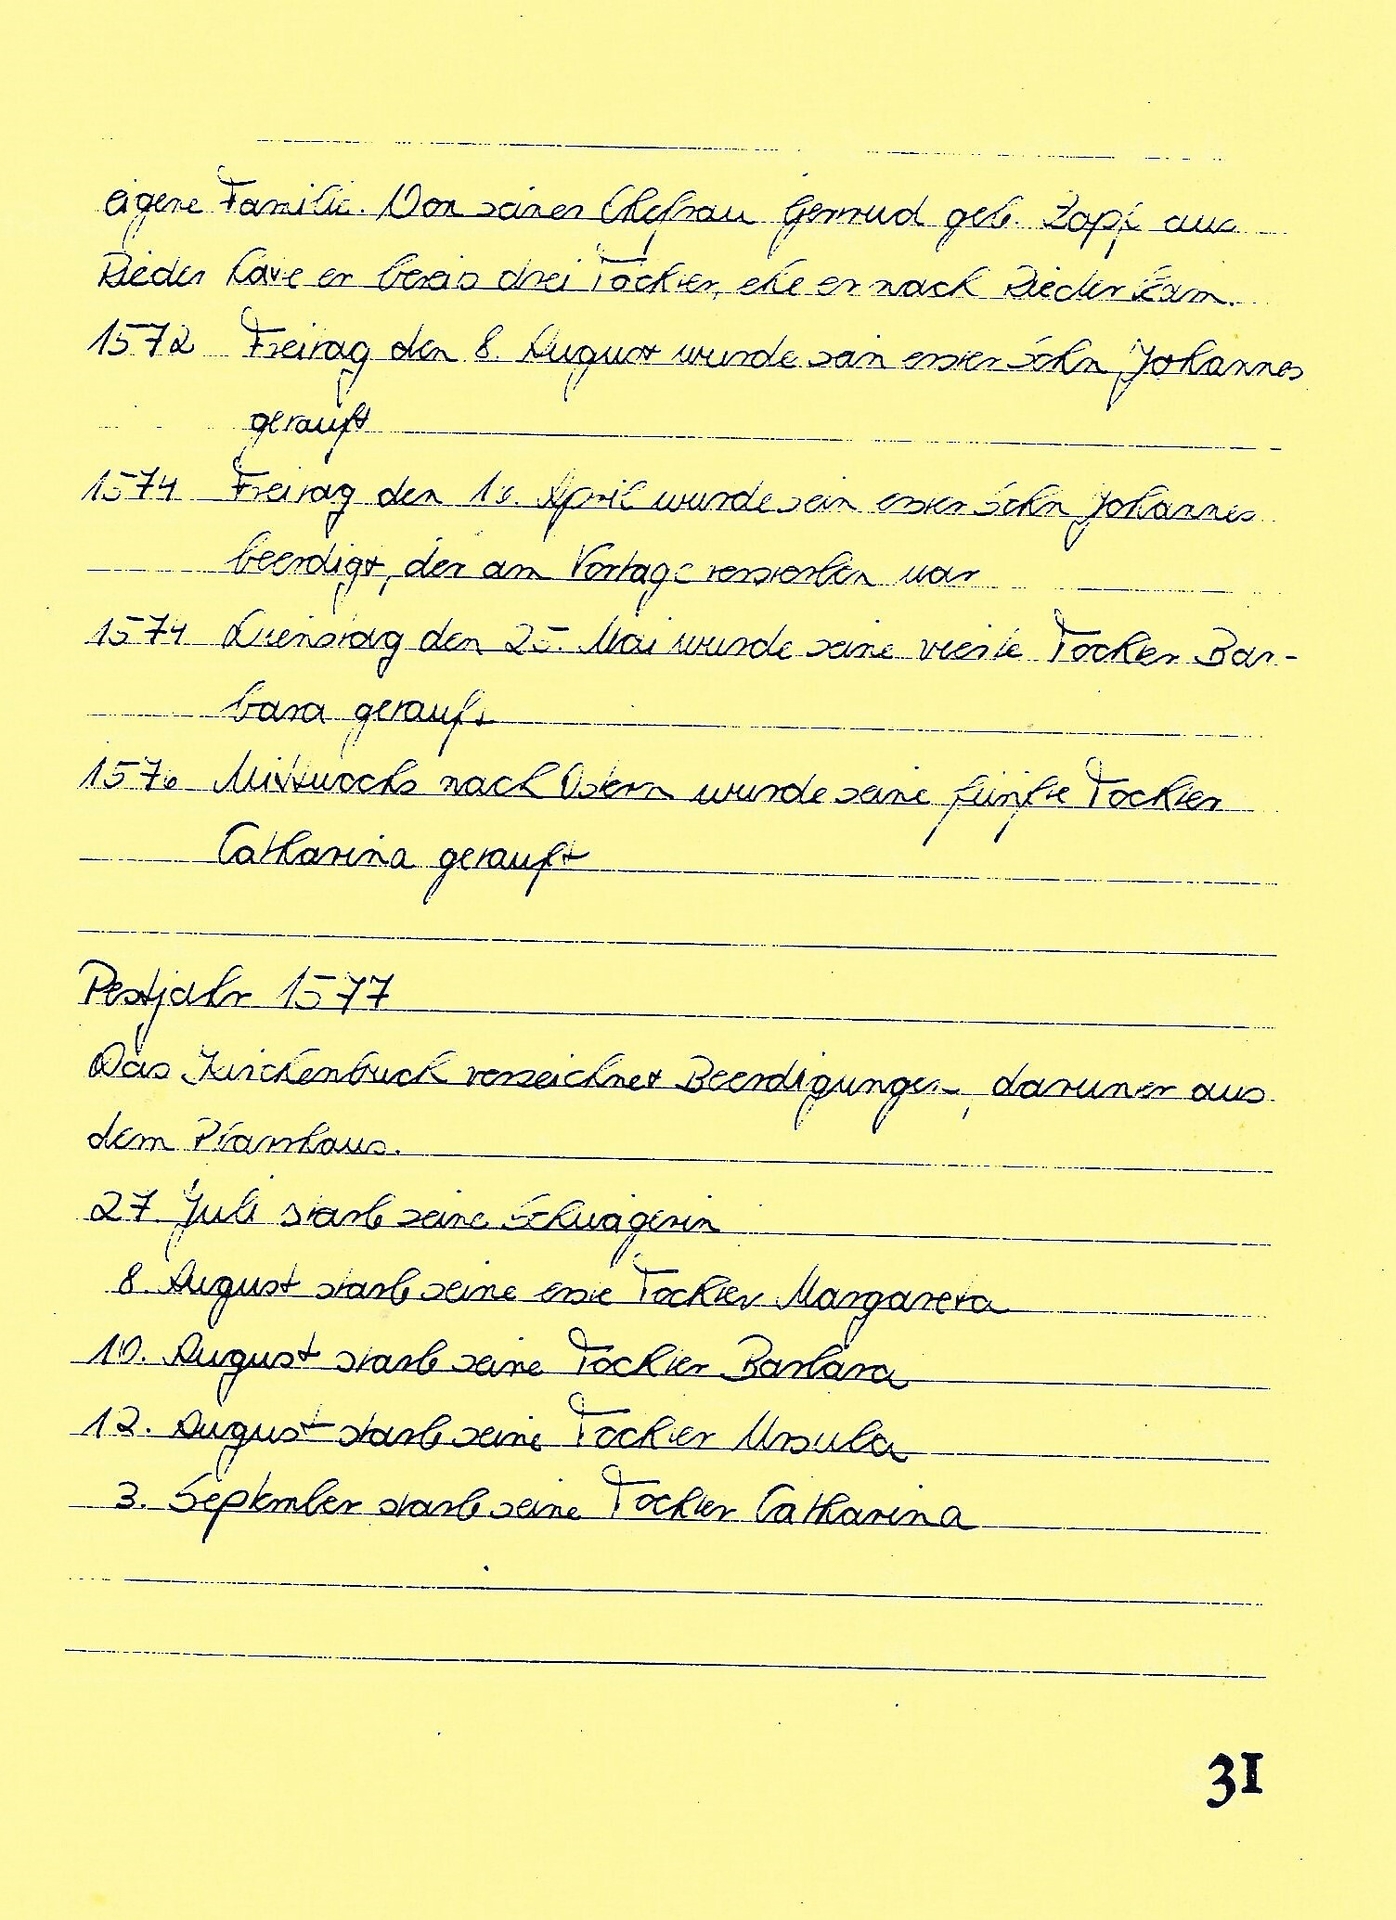 eigene Familie. Von seiner Ehefrau Gertrud geb. Zapf aus
Rieder hatte er bereits drei Töchter, ehe er nach Rieder kam.
1572 Freitag den 8. August wurde sein erster Sohn Johannes
getauft
1574 Freitag den April wurde sein erster Sohn Johannes
beerdigt, der am Vortage verstorben war
1574 Dienstag den 25. Mai wurde seine vierte Tochter Bar-
bara getauft
1576 Mittwochs nach Ostern wurde seine fünfte Tochter
Catharina getauft
Pestjahr 1577
Das Kirchenbuch verzeichnet Beerdigungen, darunter aus
dem Pfarrhaus.
27. Juli starb seine Schwägerin
8. August starb seine erste Tochter Margareta
10. August starb seine Tochter Barbara
12. August starb seine Tochter Ursula
3. September starb seine Tochter Catharina
31